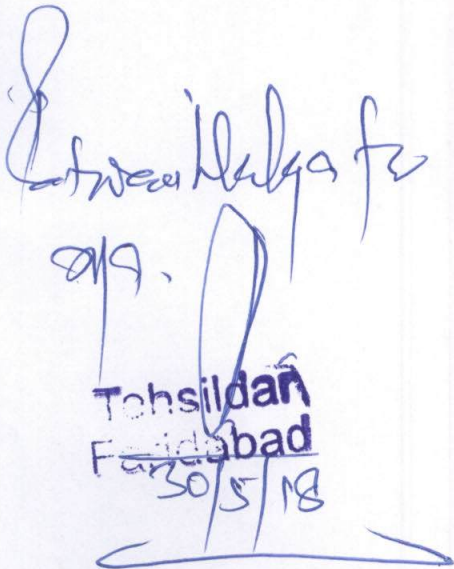 Patwari Halqa for
n/a.
Tehsildar
Faridabad
30/5/18